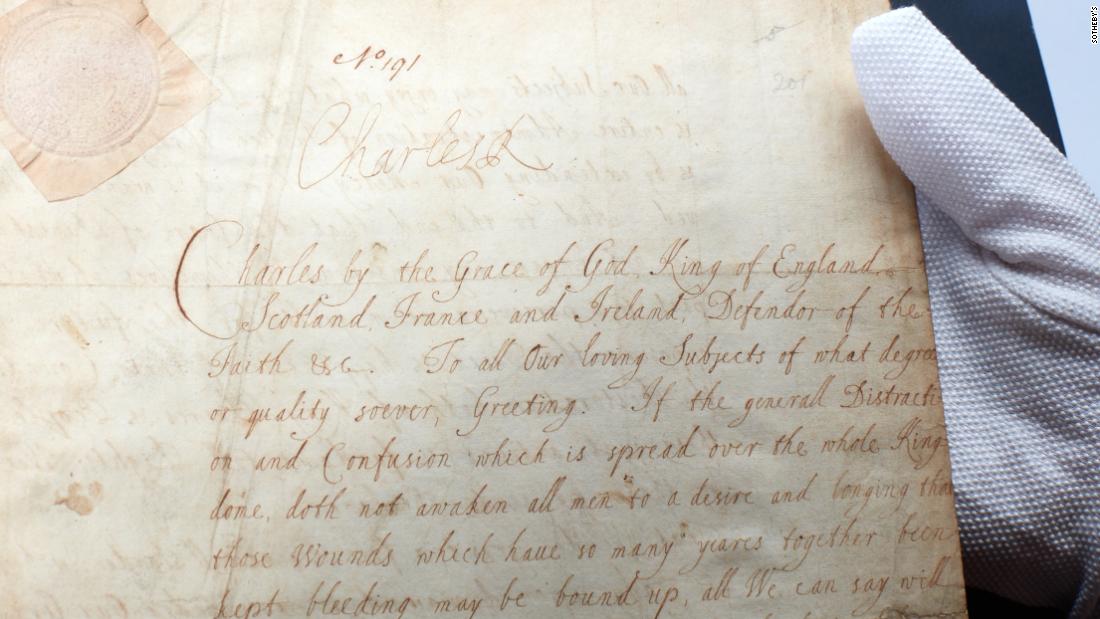 No. 191
201
Charles R
Charles by the Grace of God, King of England,
Scotland, France and Ireland, Defendor of the
Faith &c. To all Our loving Subjects of what degree
or quality soever, Greeting. If the generall Distracti
on and Confusion which is spread over the whole King
dome, doth not awaken all men to a desire and longing that
those Wounds which have so many yeares together been
kept bleeding may be bound up, all We can say will
SOTHEBY'S